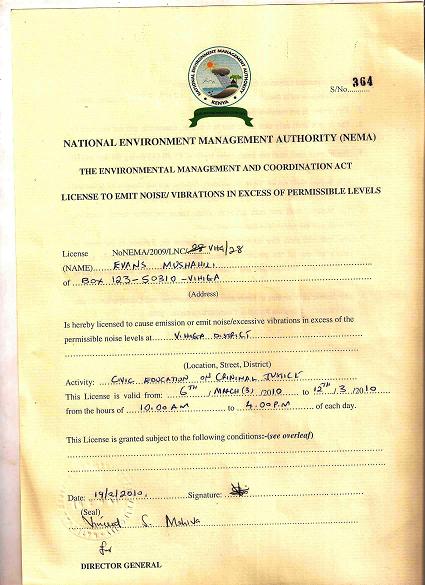 NATIONAL ENVIRONMENT MANAGEMENT AUTHORITY
KENYA
S/No. 364
NATIONAL ENVIRONMENT MANAGEMENT AUTHORITY (NEMA)
THE ENVIRONMENTAL MANAGEMENT AND COORDINATION ACT
LICENSE TO EMIT NOISE/ VIBRATIONS IN EXCESS OF PERMISSIBLE LEVELS
License NoNEMA/2009/LNC/ 28 VHG/28
(NAME) EVANS
of BOX 123-50310-VIHIGA
(Address)
Is hereby licensed to cause emission or emit noise/excessive vibrations in excess of the
permissible noise levels at VIHIGA DISTRICT
(Location, Street, District)
Activity: CIVIC EDUCATION ON CRIMINAL JUSTICE
This License is valid from: 6TH / MARCH(3) /2010 to 12TH / 3 /2010
from the hours of 10.00 AM to 4.00 P.M of each day.
This License is granted subject to the following conditions:-(see overleaf)
Date: 19/2/2010. Signature:
(Seal)
Vincent S.
for
DIRECTOR GENERAL